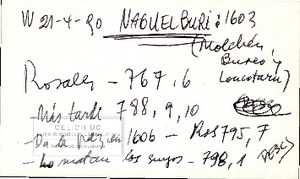 W 21-4-90 NAGUELBURI : 1603
(Molchén,
Bureo y
Loncotaru)
Rosales - 767, 6
- Más tarde 788, 9, 10
- Da la paz en 1606 - Ros 795, 7
- Lo matan los suyos - 798, 1
CELICH UC